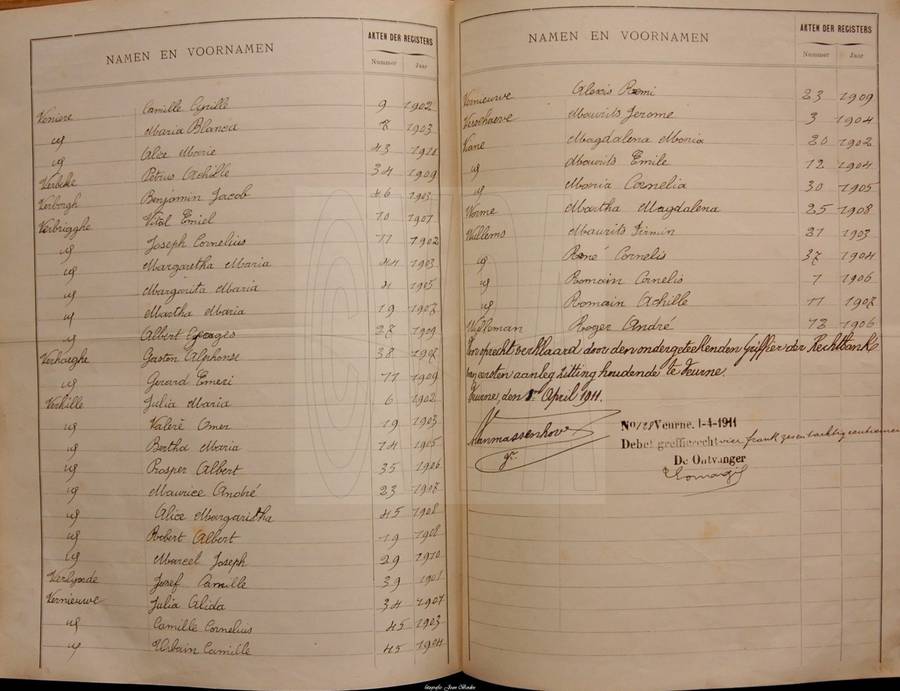 NAMEN EN VOORNAMEN
AKTEN DER REGISTERS
Nummer Jaar
Camille Cyrille 9 1902
id Maria Blanca 7 1903
id Alix Marie 43
Verbeke Petrus Achille 34 1909
Verborgh Benjamin Jacob 46 1903
Verbrigghe Vital Emiel 10 1907
id Joseph Cornelius 11 1902
id Margaretha Maria 44 1903
id Margarita Maria 4 1905
id Martha Maria 19 1907
id Albert Georges 27 1909
Verhaeghe Gaston Alphonse 38 1907
id Gerard Emeri 11 1909
Verhille Julia Maria 6 1902
id Valeré Omer 19 1903
id Bertha Maria 14 1905
id Prosper Albert 35 1906
id Maurice André 23 1907
id Alice Margaritha 45 1908
id Robert Albert 19 1908
id Marcel Joseph 29 1910
Verlynde Josef Camille 39 1901
Vernieuwe Julia Alida 34 1907
id Camille Cornelius 45 1903
id Urbain Camille 45 1904
NAMEN EN VOORNAMEN
AKTEN DER REGISTERS
Nummer Jaar
Vernieuwe Alexis Remi 23 1909
Verschaeve Maurits Jerome 3 1904
Viane Magdalena Maria 20 1902
id Maurits Emile 12 1904
id Maria Cornelia 30 1905
Worme Martha Magdalena 25 1908
Willems Maurits Firmin 21 1903
id René Cornelis 37 1904
id Romain Cornelis 7 1906
id Romain Achille 11 1907
Roger André 12 1906
Voor oprecht verklaard door den ondergeteekenden Griffier der Rechtbank
van eersten aanleg zitting houdende te Veurne.
Veurne, den 1n April 1911.
Vanmassenhove
gr.
Veurne. 1-4-1911
Debet geëffigerecht vier frank zes en tachtig centiemen
De Ontvanger
fotografie